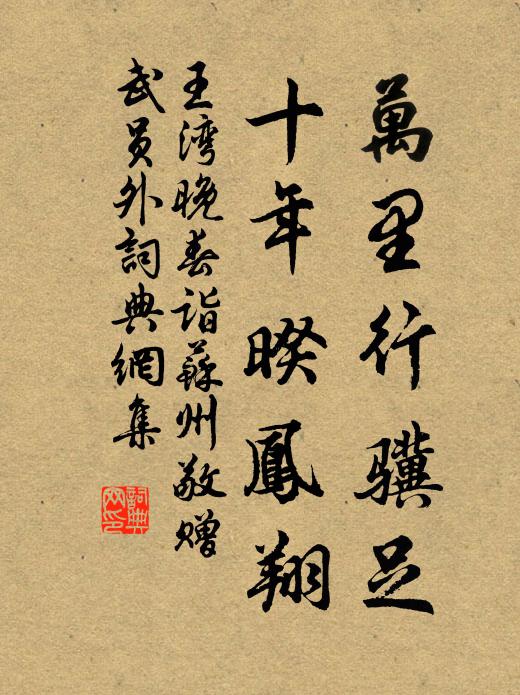 萬里行驥足
十年暌鳳翔
王湾晚春詣蘇州敬贈
武員外詞典網集
詞典
网印